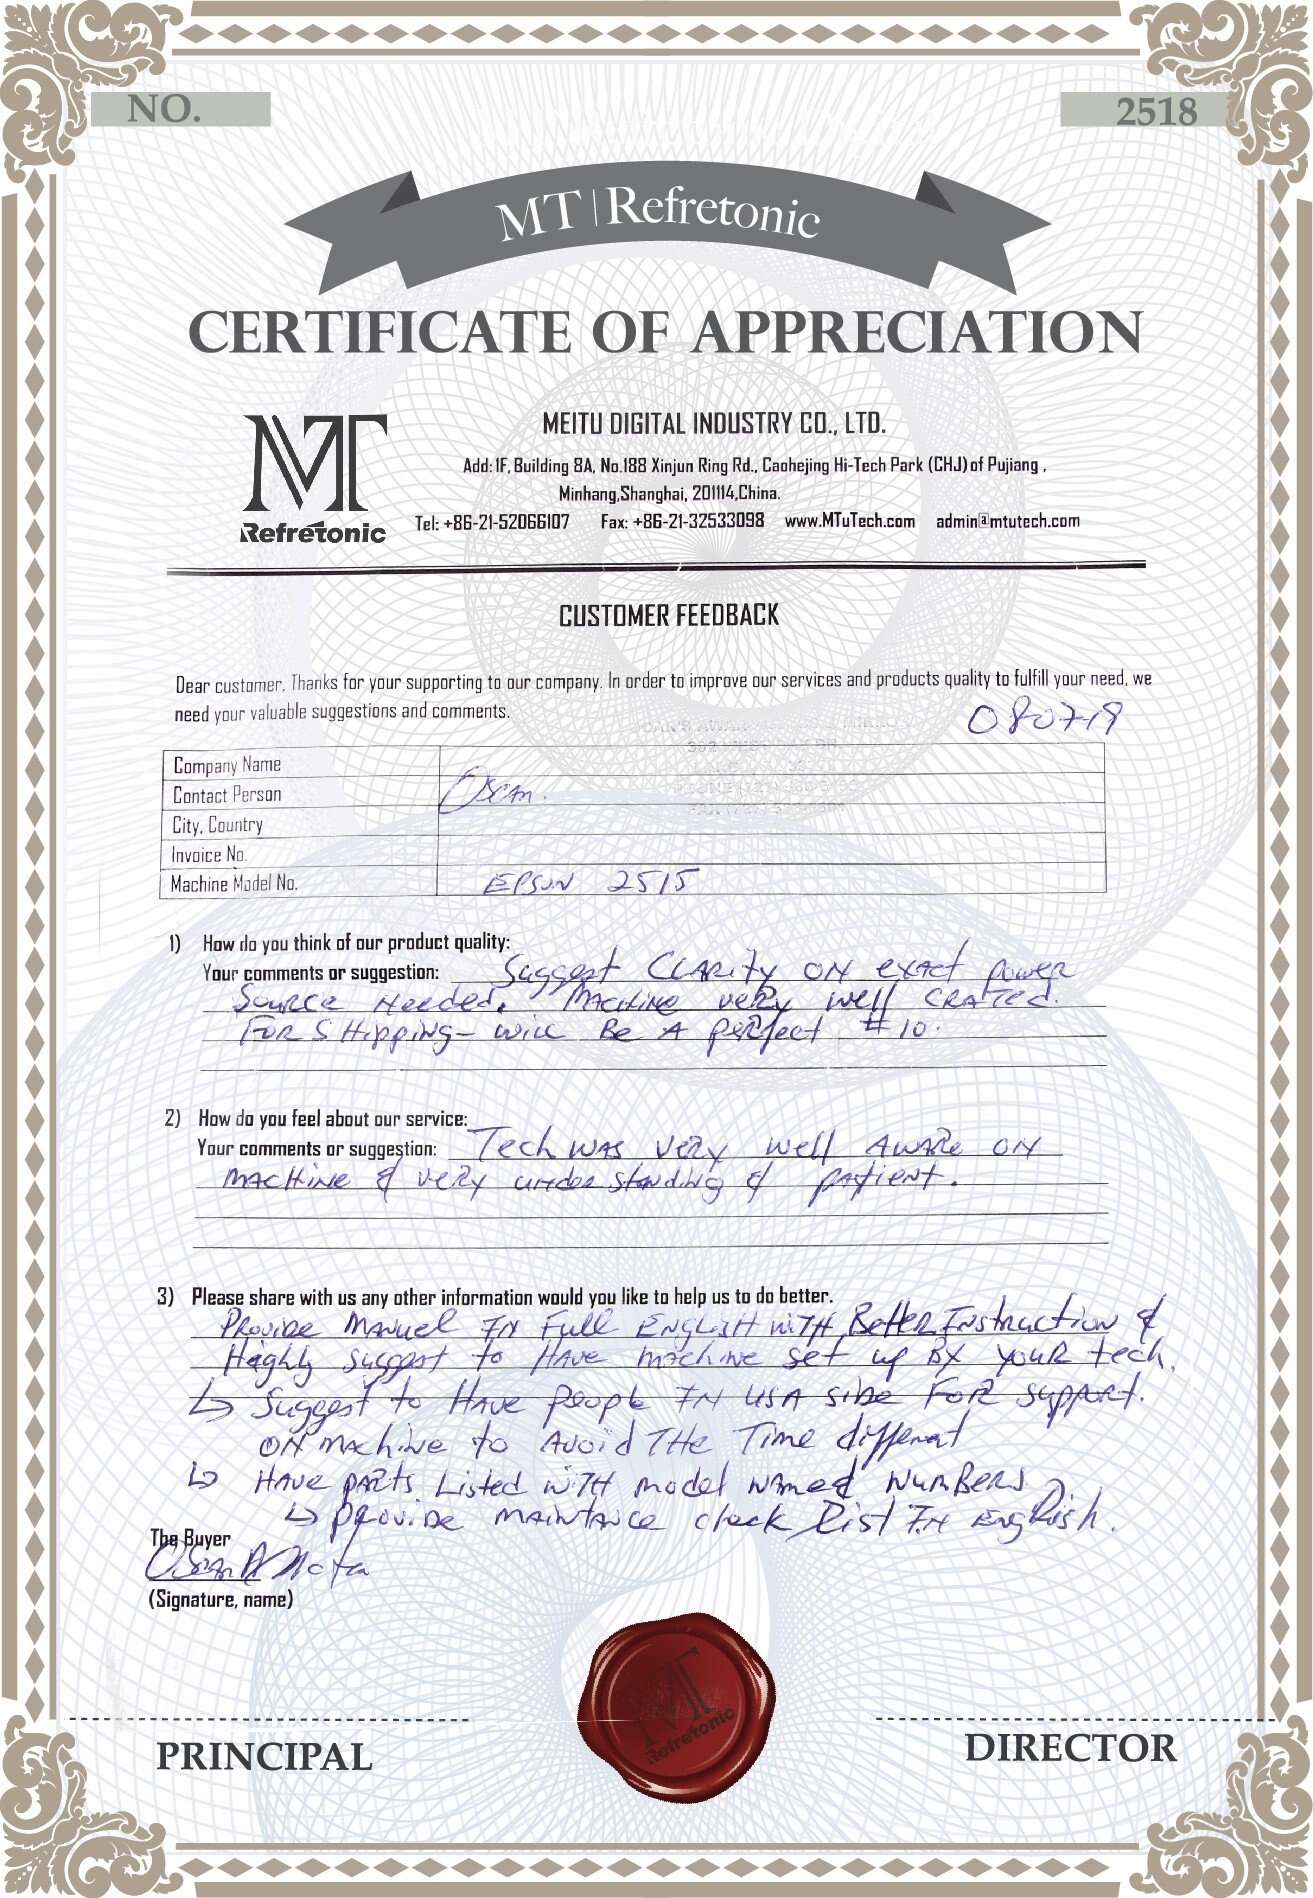 NO.
2518
MT | Refretonic
CERTIFICATE OF APPRECIATION
MT
Refretonic
MEITU DIGITAL INDUSTRY CO., LTD.
Add: 1F, Building 8A, No.188 Xinjun Ring Rd., Caohejing Hi-Tech Park (CHJ) of Pujiang ,
Minhang,Shanghai, 201114,China.
Tel: +86-21-52066107 Fax: +86-21-32533098 www.MTuTech.com admin@mtutech.com
CUSTOMER FEEDBACK
Dear customer, Thanks for your supporting to our company. In order to improve our services and products quality to fulfill your need, we
need your valuable suggestions and comments.
080719
Company Name
Contact Person Oscar.
City, Country
Invoice No.
Machine Model No. EPSON 2515
1) How do you think of our product quality:
Your comments or suggestion: Suggest CLARity ON exact power
Source Needed. MacHine veRy well CRATed.
FOR SHipping - will Be A peRfect #10.
2) How do you feel about our service:
Your comments or suggestion: Tech WAS VeRy well AWARe ON
MacHine & veRy understanding & patient.
3) Please share with us any other information would you like to help us to do better.
PRovide Manuel IN Full ENGLisH WiTH Better Instruction &
Highly suggest to HAve machine set up By youR tech.
↳ Suggest to HAve people IN USA side FOR support.
ON machine to Avoid THe Time different
↳ HAve paRts Listed wiTH model NAmed NumBeRs
↳ pRovide maintance check List IN English.
The Buyer
Oscar A Mota
(Signature, name)
MT
Refretonic
PRINCIPAL
DIRECTOR